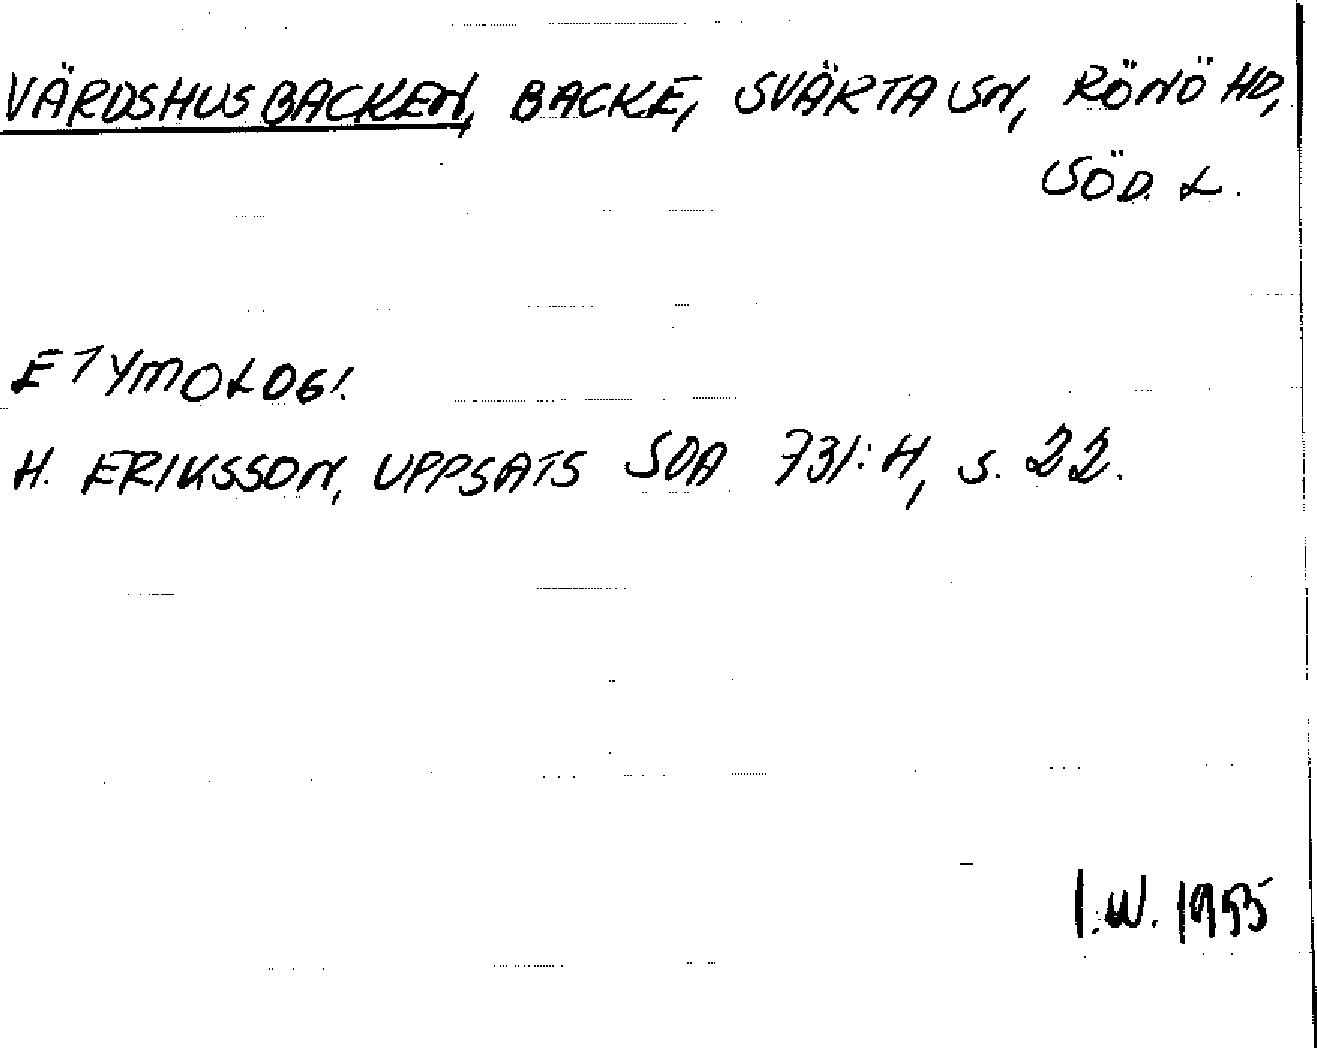 VÄRDSHUSBACKEN, BACKE, SVÄRTA SN, RÖNÖ HD,
SÖD. L.
ETYMOLOGI.
H. ERIKSSON, UPPSATS SOA 731:H, s. 22.
I.W. 1995